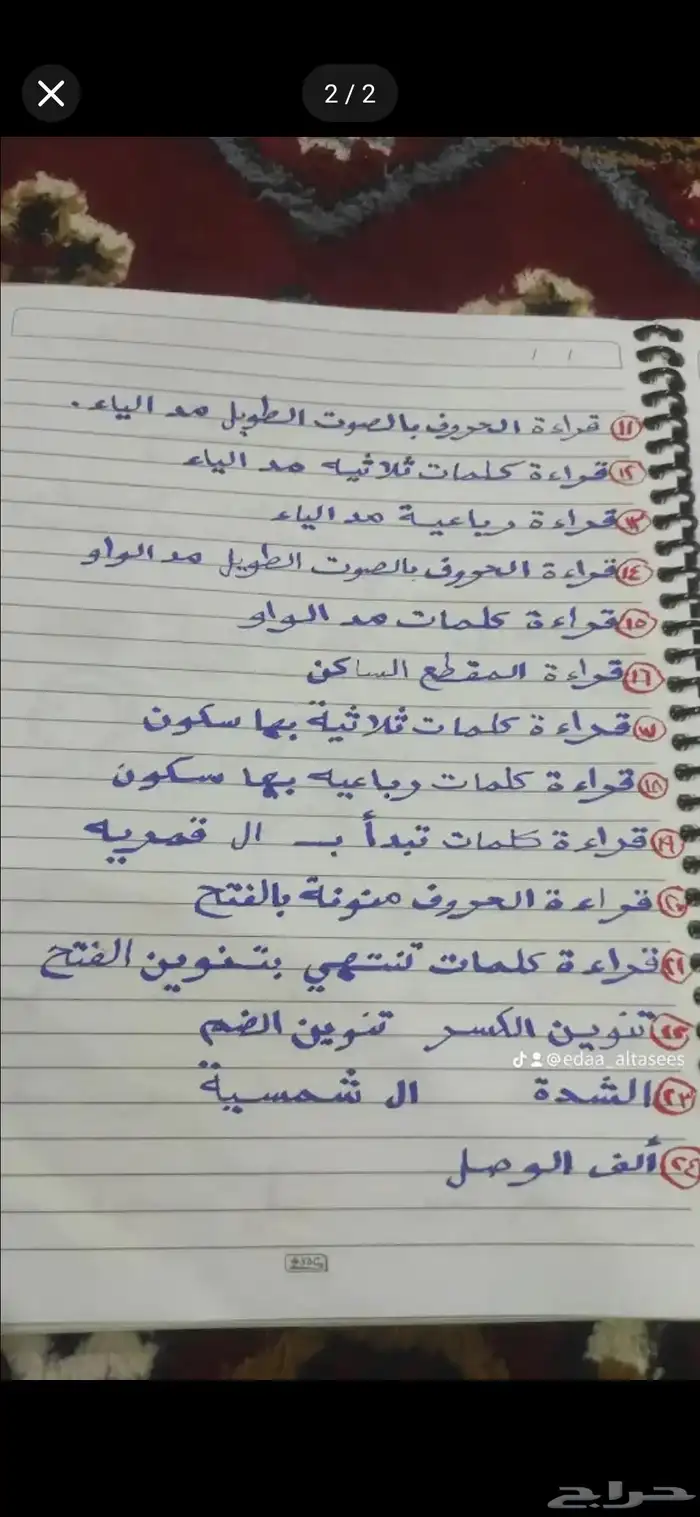 2 / 2
١١ قراءة الحروف بالصوت الطويل مد الياء.
١٢ قراءة كلمات ثلاثيه مد الياء
١٣ قراءة رباعية مد الياء
١٤ قراءة الحروف بالصوت الطويل مد الواو
١٥ قراءة كلمات مد الواو
١٦ قراءة المقطع الساكن
١٧ قراءة كلمات ثلاثية بها سكون
١٨ قراءة كلمات رباعيه بها سكون
١٩ قراءة كلمات تبدأ بـ ال قمريه
٢٠ قراءة الحروف منونة بالفتح
٢١ قراءة كلمات تنتهي بتنوين الفتح
٢٢ تنوين الكسر تنوين الضم
@edaa_altasees
٢٣ الشدة ال شمسية
٢٤ ألف الوصل
حراج